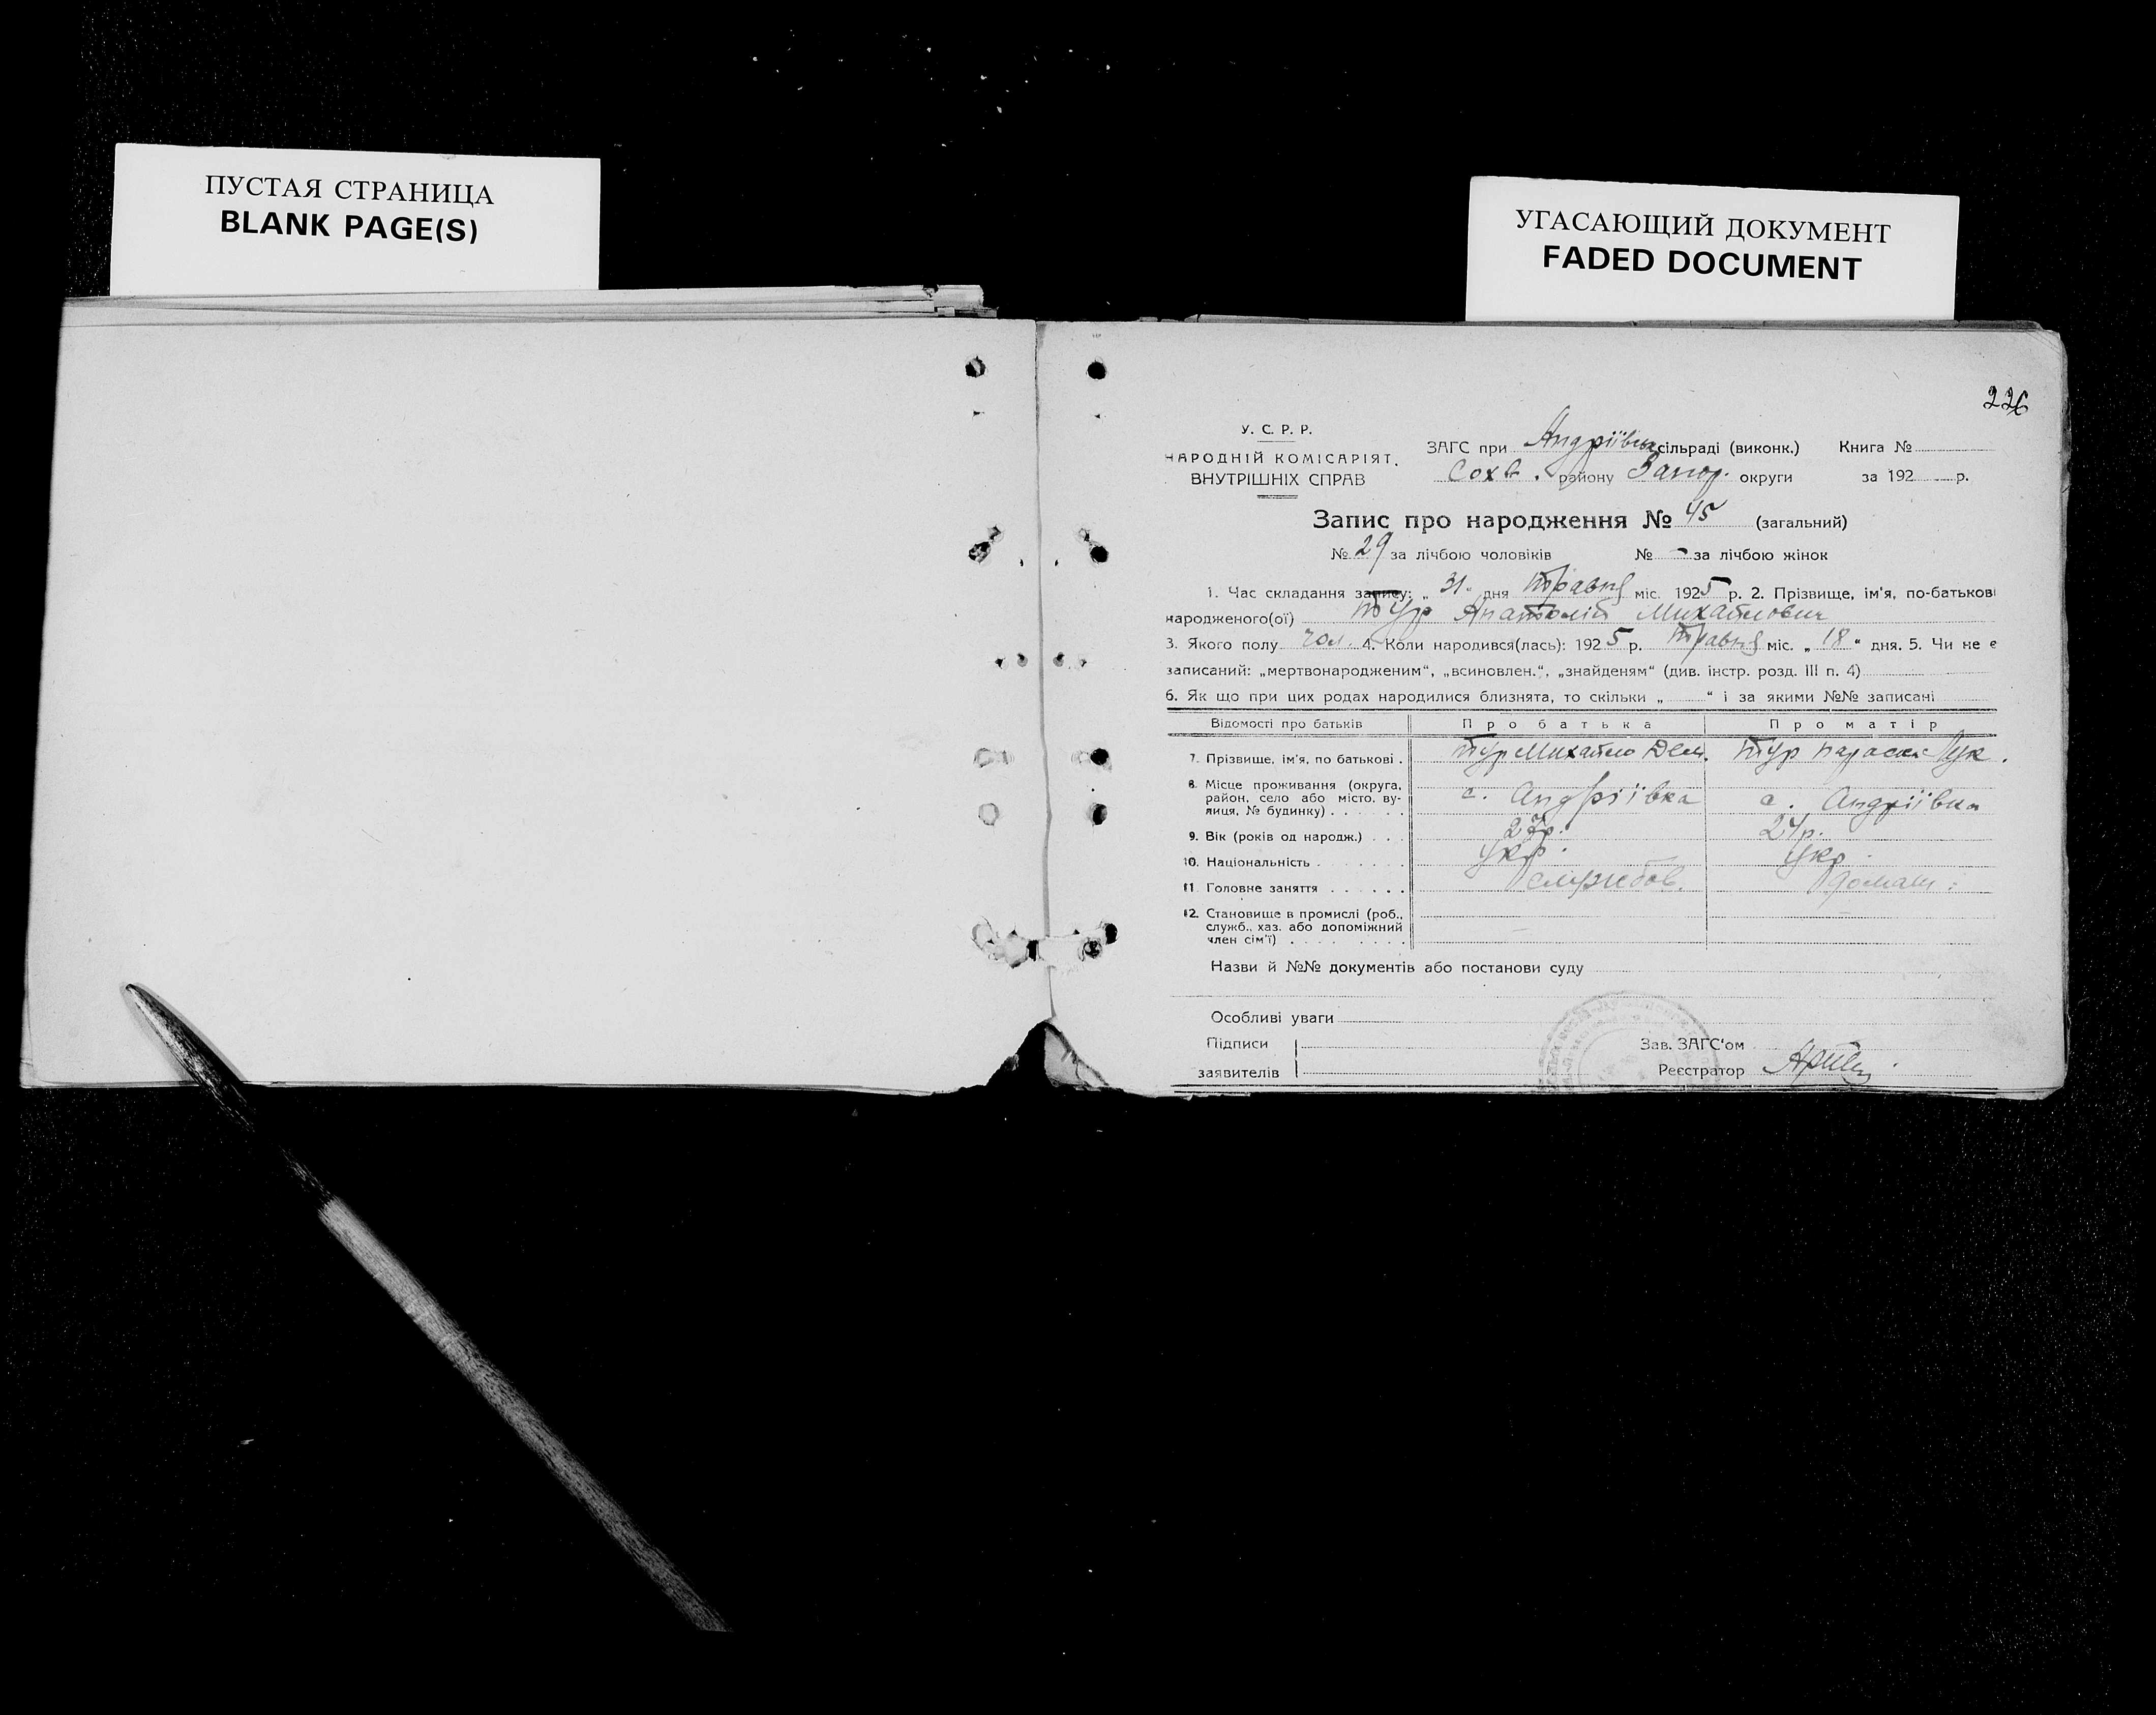 ПУСТАЯ СТРАНИЦА
BLANK PAGE(S)
УГАСАЮЩИЙ ДОКУМЕНТ
FADED DOCUMENT
226
У. С. Р. Р.
НАРОДНІЙ КОМІСАРІЯТ.
ВНУТРІШНІХ СПРАВ
ЗАГС при Андріївск сільраді (виконк.) Книга №
Сохв. району Запор. округи за 192 р.
Запис про народження № 45 (загальний)
№ 29 за лічбою чоловіків № - за лічбою жінок
1. Час складання запису: „ 31 " дня травня міс. 1925 р. 2. Прізвище, ім'я, по-батькові
народженого(ої) Тур Анатолій Михайлович
3. Якого полу чол. 4. Коли народився(лась): 1925 р. травня міс. „ 18 " дня. 5. Чи не є
записаний: „мертвонародженим", „всиновлен.", „знайденям" (див. інстр. розд. III п. 4)
6. Як що при цих родах народилися близнята, то скільки „ " і за якими №№ записані
Відомості про батьків Про батька Про матір
7. Прізвище, ім'я, по батькові . Тур Михайло Дем. Тур Параска Лук.
8. Місце проживання (округа, район, село або місто, вулиця, № будинку) с. Андріївка с. Андріївка
9. Вік (років од народж.) 27р. 24р.
10. Національність Укр. Укр.
11. Головне заняття службов. домаш.
12. Становище в промислі (роб.,
служб., хаз. або допоміжний
член сім'ї)
Назви й №№ документів або постанови суду
Особливі уваги
Підписи Зав. ЗАГС'ом
заявителів Реєстратор